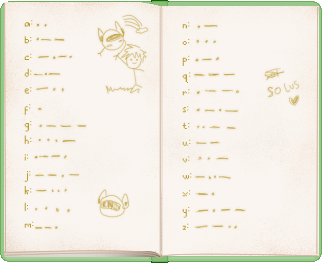 a: • •
b: • — —
c: — • — •
d: — • —
e: — • •
f: •
g: • — — —
h: • • • —
i: • — —
j: — • — —
k: — • • •
l: • • • •
m: — • •
n: • —
o: • • •
p: • — •
q: — — — —
r: • — — •
s: • — • —
t: • • — —
u: — —
v: • • —
w: — • • —
x: — •
y: — • — —
z: — — • •
SOLUS